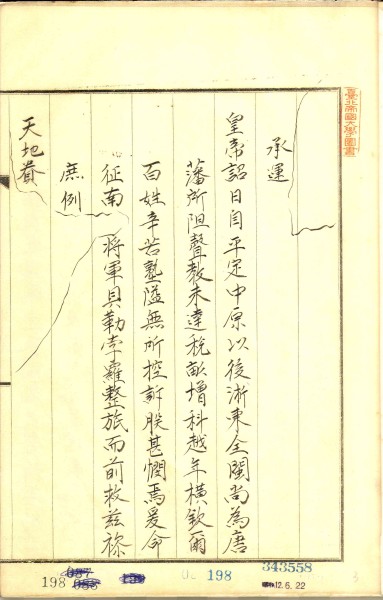 臺北帝國大學圖書
承運
皇帝詔曰自平定中原以後浙東全閩尚為唐
藩所阻聲教未達稅畝增科越年橫欽爾
百姓辛苦墊隘無所控訴朕甚憫焉爰命
征南 將軍貝勒孛羅整旅而前救茲祢
庶例
天地眷
198
198
343558
12.6.22